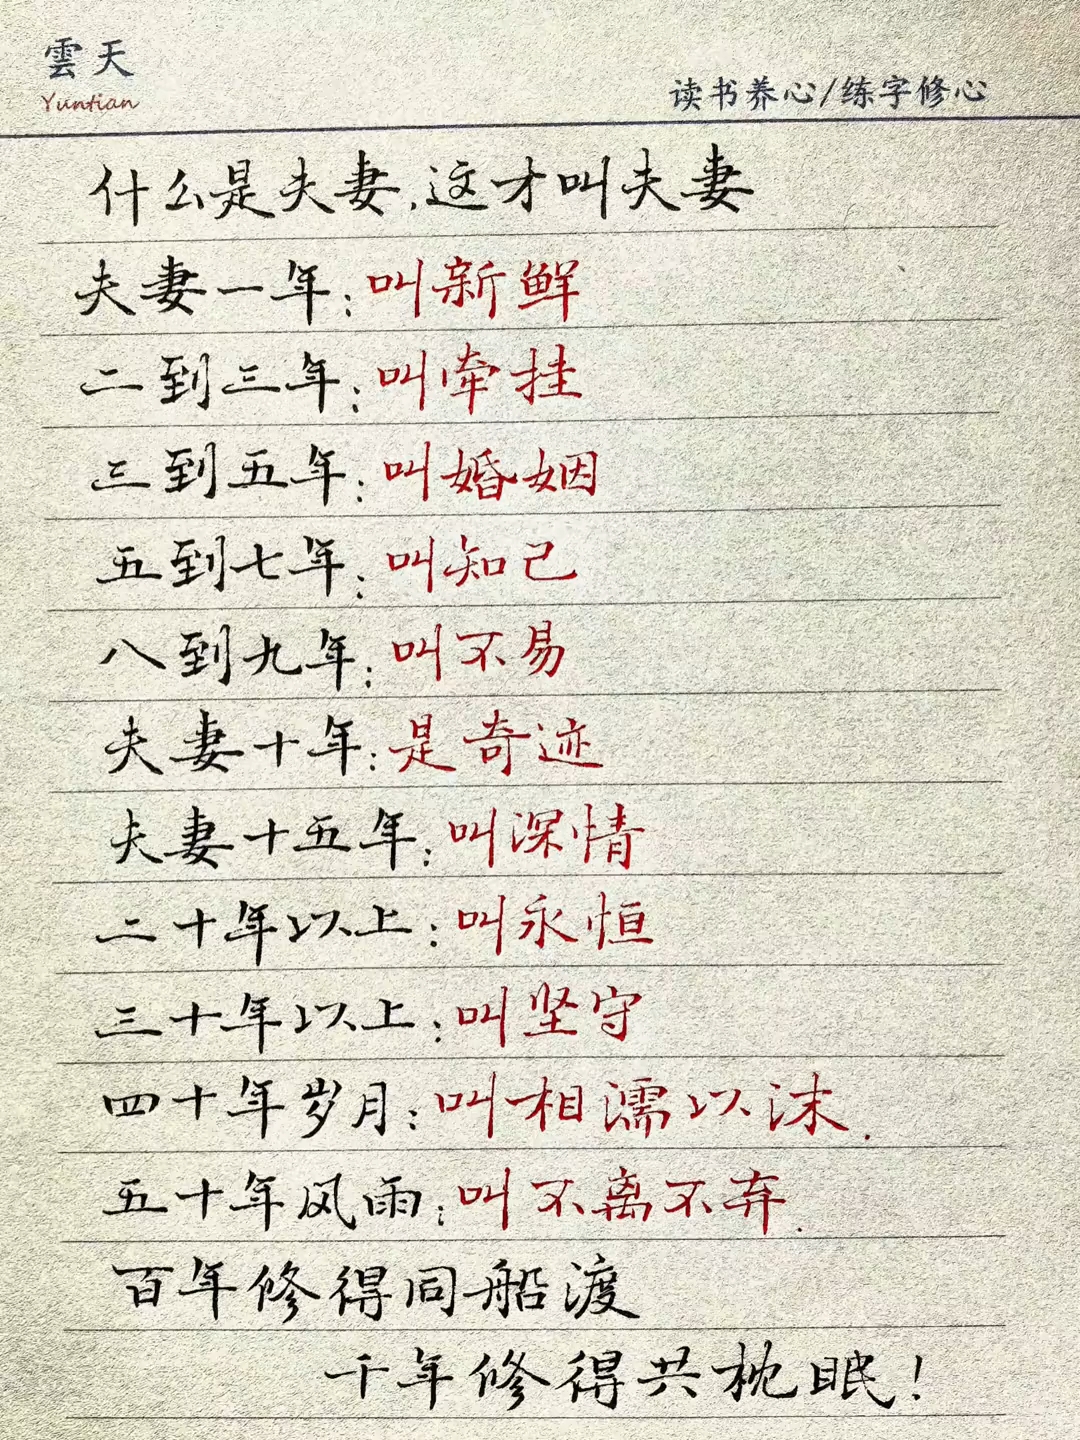 雲天
Yuntian
读书养心/练字修心
什么是夫妻,这才叫夫妻
夫妻一年:叫新鲜
二到三年:叫牵挂
三到五年:叫婚姻
五到七年:叫知己
八到九年:叫不易
夫妻十年:是奇迹
夫妻十五年:叫深情
二十年以上:叫永恒
三十年以上:叫坚守
四十年岁月:叫相濡以沫.
五十年风雨:叫不离不弃.
百年修得同船渡
千年修得共枕眠!